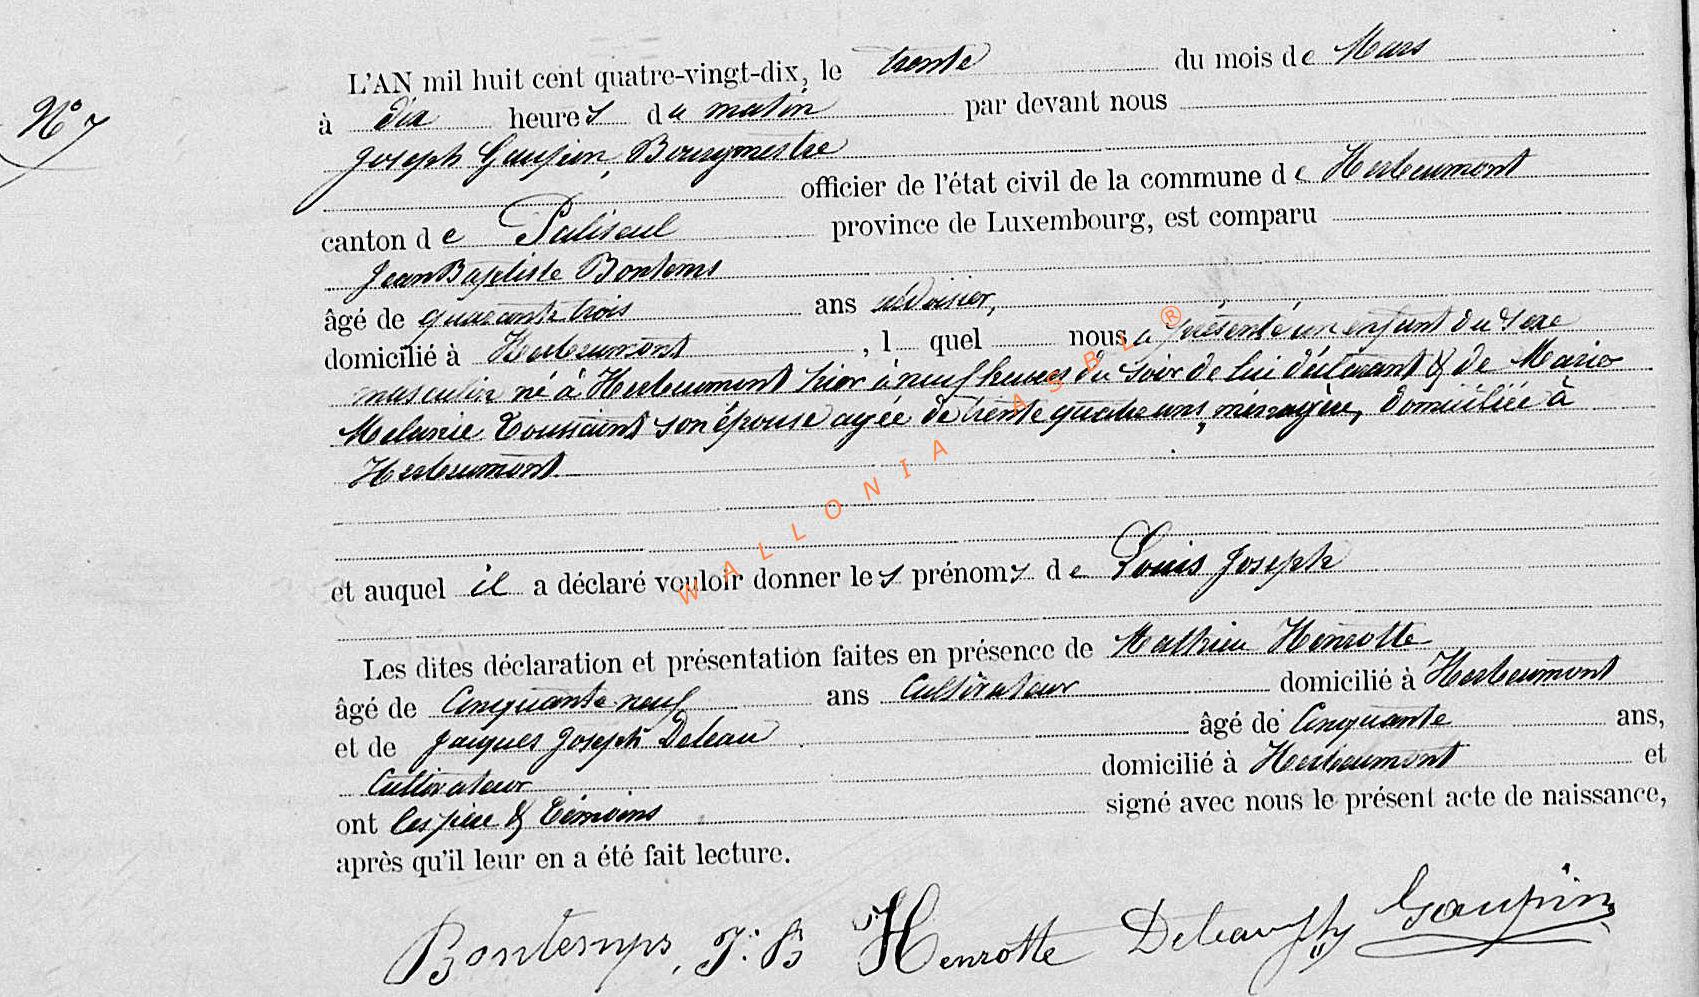 N° 7
L'AN mil huit cent quatre-vingt-dix, le trente du mois de Mars
à dix heures du matin par devant nous
Joseph Gaupin, Bourgmestre
officier de l'état civil de la commune de Herbeumont
canton de Paliseul province de Luxembourg, est comparu
Jean Baptiste Bontems
âgé de quarante trois ans ardoisier,
domicilié à Herbeumont, l quel nous a présenté un enfant du sexe
masculin né à Herbeumont hier à neuf heures du soir de lui déclarant & de Marie
Melanie Toussaint son épouse agée de trente quatre ans, ménagère, domiciliée à
Herbeumont.
et auquel il a déclaré vouloir donner les prénoms de Louis Joseph
Les dites déclaration et présentation faites en présence de Mathieu Henrotte
âgé de Cinquante neuf ans Cultivateur domicilié à Herbeumont
et de Jacques Joseph Deleau âgé de Cinquante ans,
Cultivateur domicilié à Herbeumont et
ont les père & témoins signé avec nous le présent acte de naissance,
après qu'il leur en a été fait lecture.
Bontemps, J. B Henrotte Deleau Gaupin
WALLONIA ASBL ®